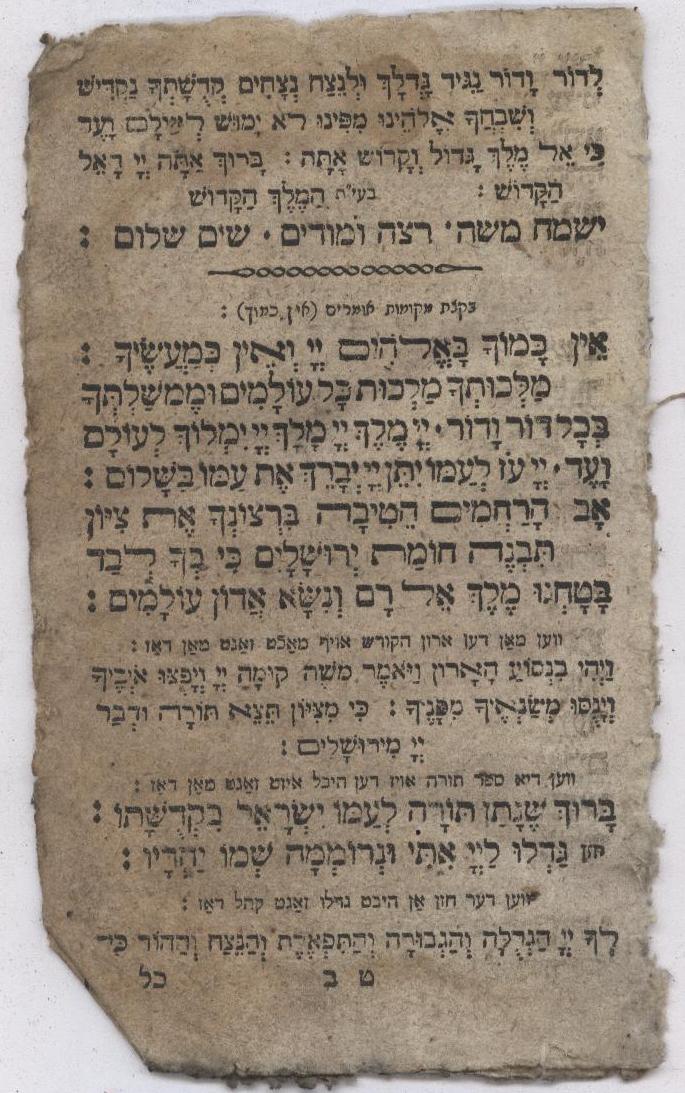 לְדוֹר וָדוֹר נַגִּיד גָּדְלָךְ וּלְנֵצַח נְצָחִים קְדֻשָּׁתְךָ נַקְדִּישׁ
וְשִׁבְחֲךָ אֱלֹהֵינוּ מִפִּינוּ לֹא יָמוּשׁ לְעוֹלָם וָעֶד
כִּי אֵל מֶלֶךְ גָּדוֹל וְקָדוֹשׁ אָתָּה : בָּרוּךְ אַתָּה יְיָ הָאֵל
הַקָּדוֹשׁ : בעי״ת הַמֶּלֶךְ הַקָּדוֹשׁ
ישמח משה · רצה ומודים · שים שלום :
בקצת מקומות אומרים (אין כמוך) :
אֵין כָּמוֹךָ בָּאֱלֹהִים יְיָ וְאֵין כְּמַעֲשֶׂיךָ :
מַלְכוּתְךָ מַלְכוּת כָּל עוֹלָמִים וּמֶמְשַׁלְתְּךָ
בְּכָל דּוֹר וָדוֹר · יְיָ מֶלֶךְ יְיָ מָלָךְ יְיָ יִמְלוֹךְ לְעוֹלָם
וָעֶד · יְיָ עֹז לְעַמּוֹ יִתֵּן יְיָ יְבָרֵךְ אֶת עַמּוֹ בַשָּׁלוֹם :
אָב הָרַחְמִים הֵטִיבָה בִּרְצוֹנְךָ אֶת צִיּוֹן
תִּבְנֶה חוֹמַת יְרוּשָׁלָיִם כִּי בְךָ לְבַד
בָּטָחְנוּ מֶלֶךְ אֵל רָם וְנִשָּׂא אֲדוֹן עוֹלָמִים :
ווען מאן דען ארון הקודש אויף מאכט זאגט מאן דאז :
וַיְהִי בִּנְסוֹעַ הָאָרוֹן וַיֹּאמֶר מֹשֶׁה קוּמָה יְיָ וְיָפֻצוּ אֹיְבֶיךָ
וְיָנֻסוּ מְשַׂנְאֶיךָ מִפָּנֶיךָ : כִּי מִצִּיּוֹן תֵּצֵא תוֹרָה וּדְבַר
יְיָ מִירוּשָׁלָיִם :
ווען דיא ספר תורה אויז דען היכל איזט זאגט מאן דאז :
בָּרוּךְ שֶׁנָּתַן תּוֹרָה לְעַמּוֹ יִשְׂרָאֵל בִּקְדֻשָּׁתוֹ :
חזן גַּדְּלוּ לַיְיָ אִתִּי וּנְרוֹמְמָה שְׁמוֹ יַחְדָּיו :
ווען דער חזן אן היבט גדלו זאגט קהל דאז :
לְךָ יְיָ הַגְּדֻלָּה וְהַגְּבוּרָה וְהַתִּפְאֶרֶת וְהַנֵּצַח וְהַהוֹד כִּי
ט ב כל